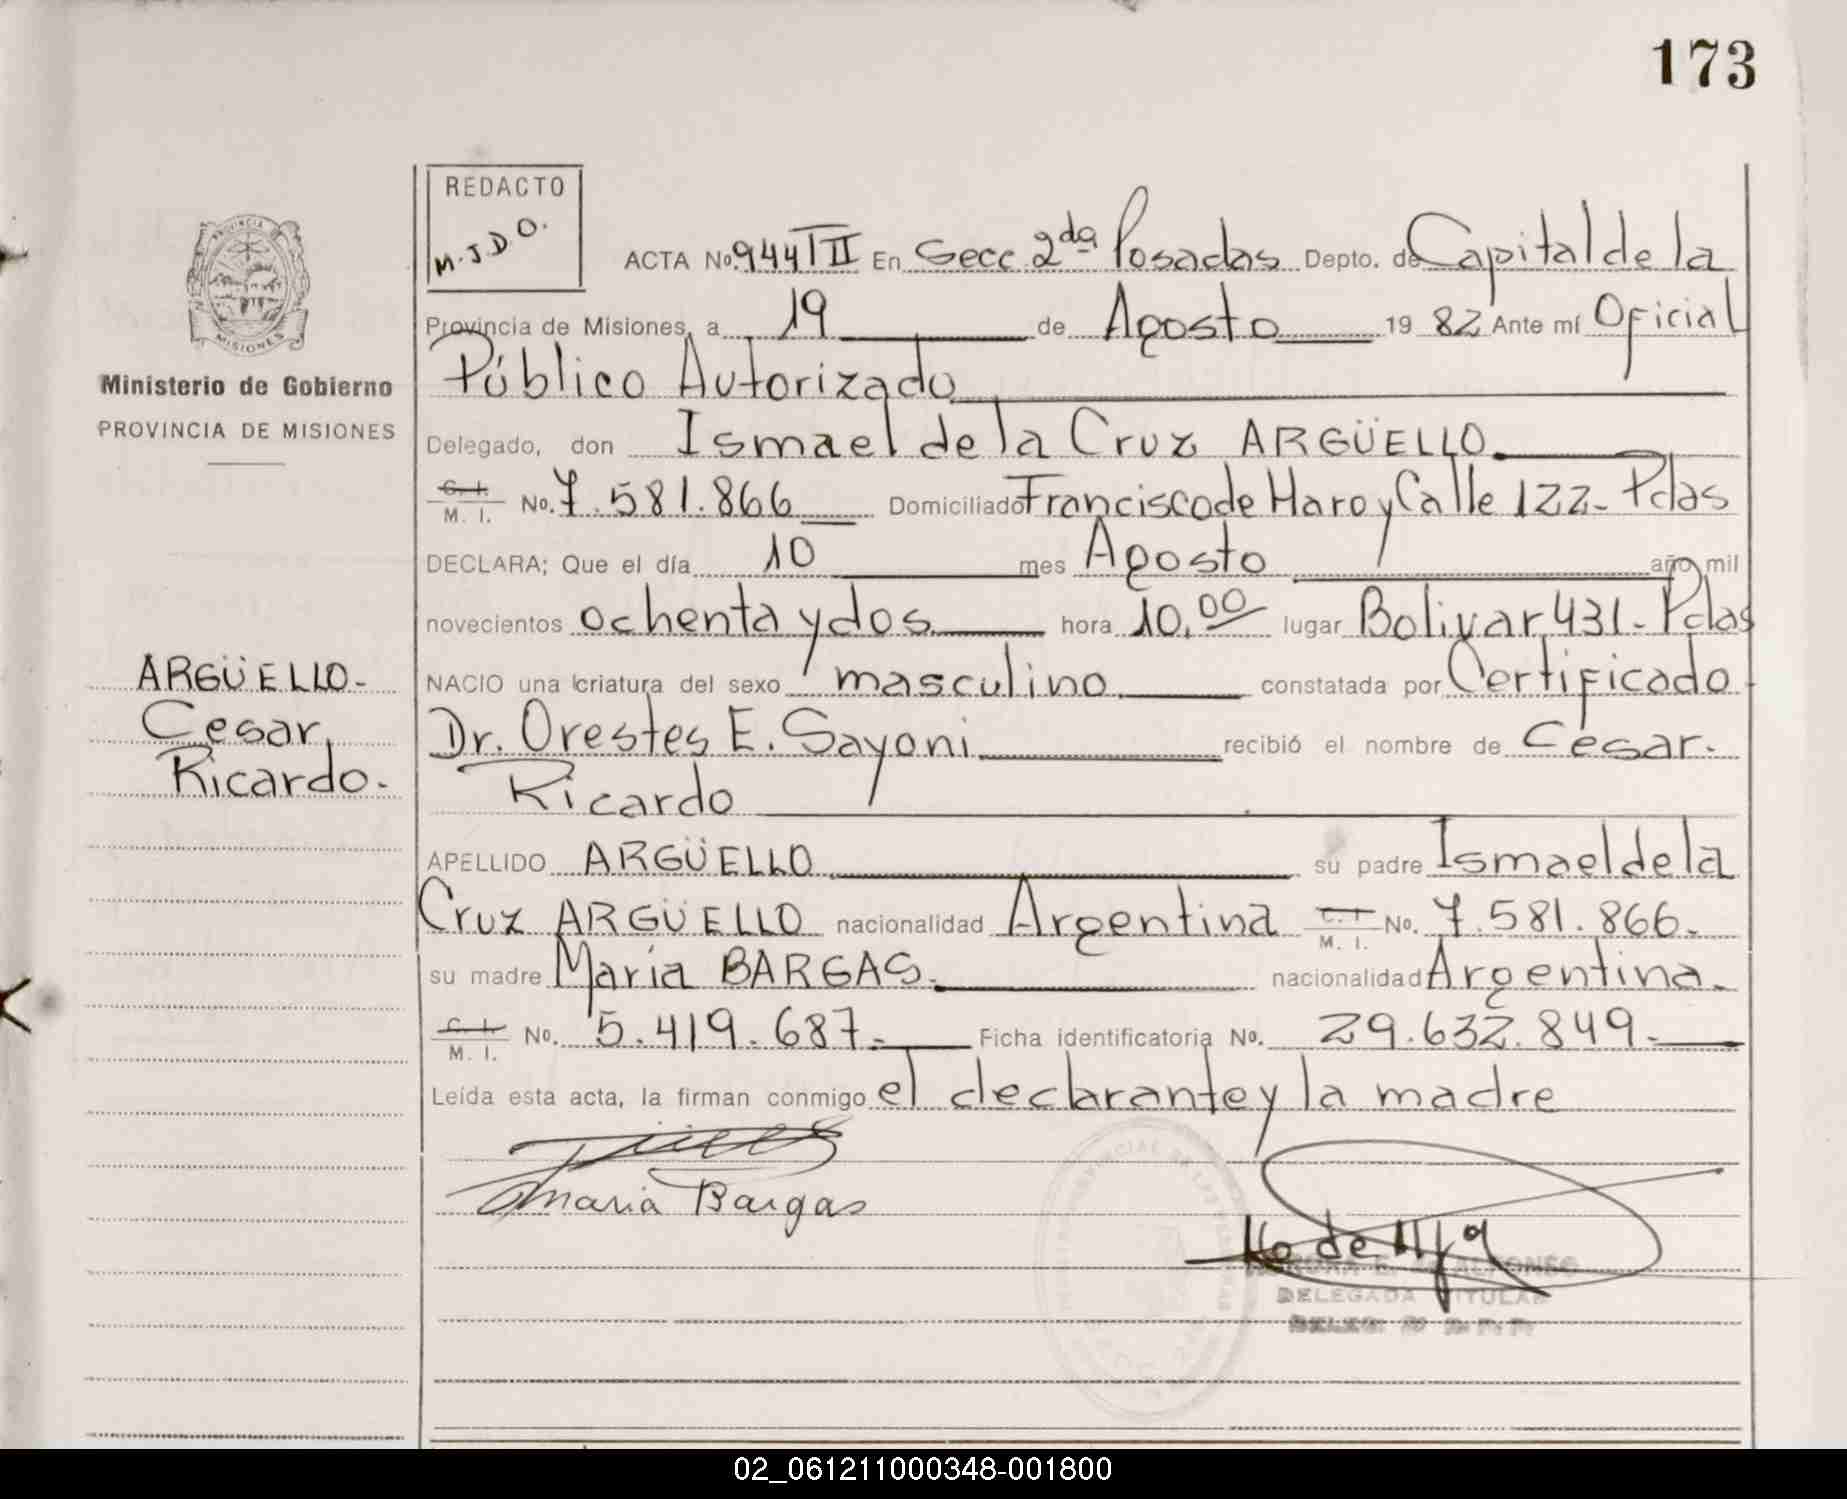 173
REDACTO
M.J.D.O.
PROVINCIA
MISIONES
Ministerio de Gobierno
PROVINCIA DE MISIONES
ACTA No. 944 TII En Secc. 2da Posadas Depto. de Capital de la
Provincia de Misiones, a 19 de Agosto 19 82 Ante mí Oficial
Público Autorizado
Delegado, don Ismael de la Cruz ARGÜELLO.
C. I. M. I. No. 7.581.866 Domiciliado Francisco de Haro y Calle 122- Pdas
DECLARA; Que el día 10 mes Agosto año mil
novecientos ochenta y dos hora 10,00 lugar Bolivar 431- Pdas
NACIO una criatura del sexo masculino constatada por Certificado
Dr. Orestes E. Sayoni recibió el nombre de César.
Ricardo
ARGÜELLO-
Cesar
Ricardo-
APELLIDO ARGÜELLO su padre Ismael de la
Cruz ARGÜELLO nacionalidad Argentina C. I. M. I. No. 7.581.866-
su madre María BARGAS. nacionalidad Argentina.
C. I. M. I. No. 5.419.687.- Ficha identificatoria No. 29.632.849.-
Leída esta acta, la firman conmigo el declarante y la madre
Maria Bargas
ALFONSO
DELEGADA TITULAR
02_061211000348-001800